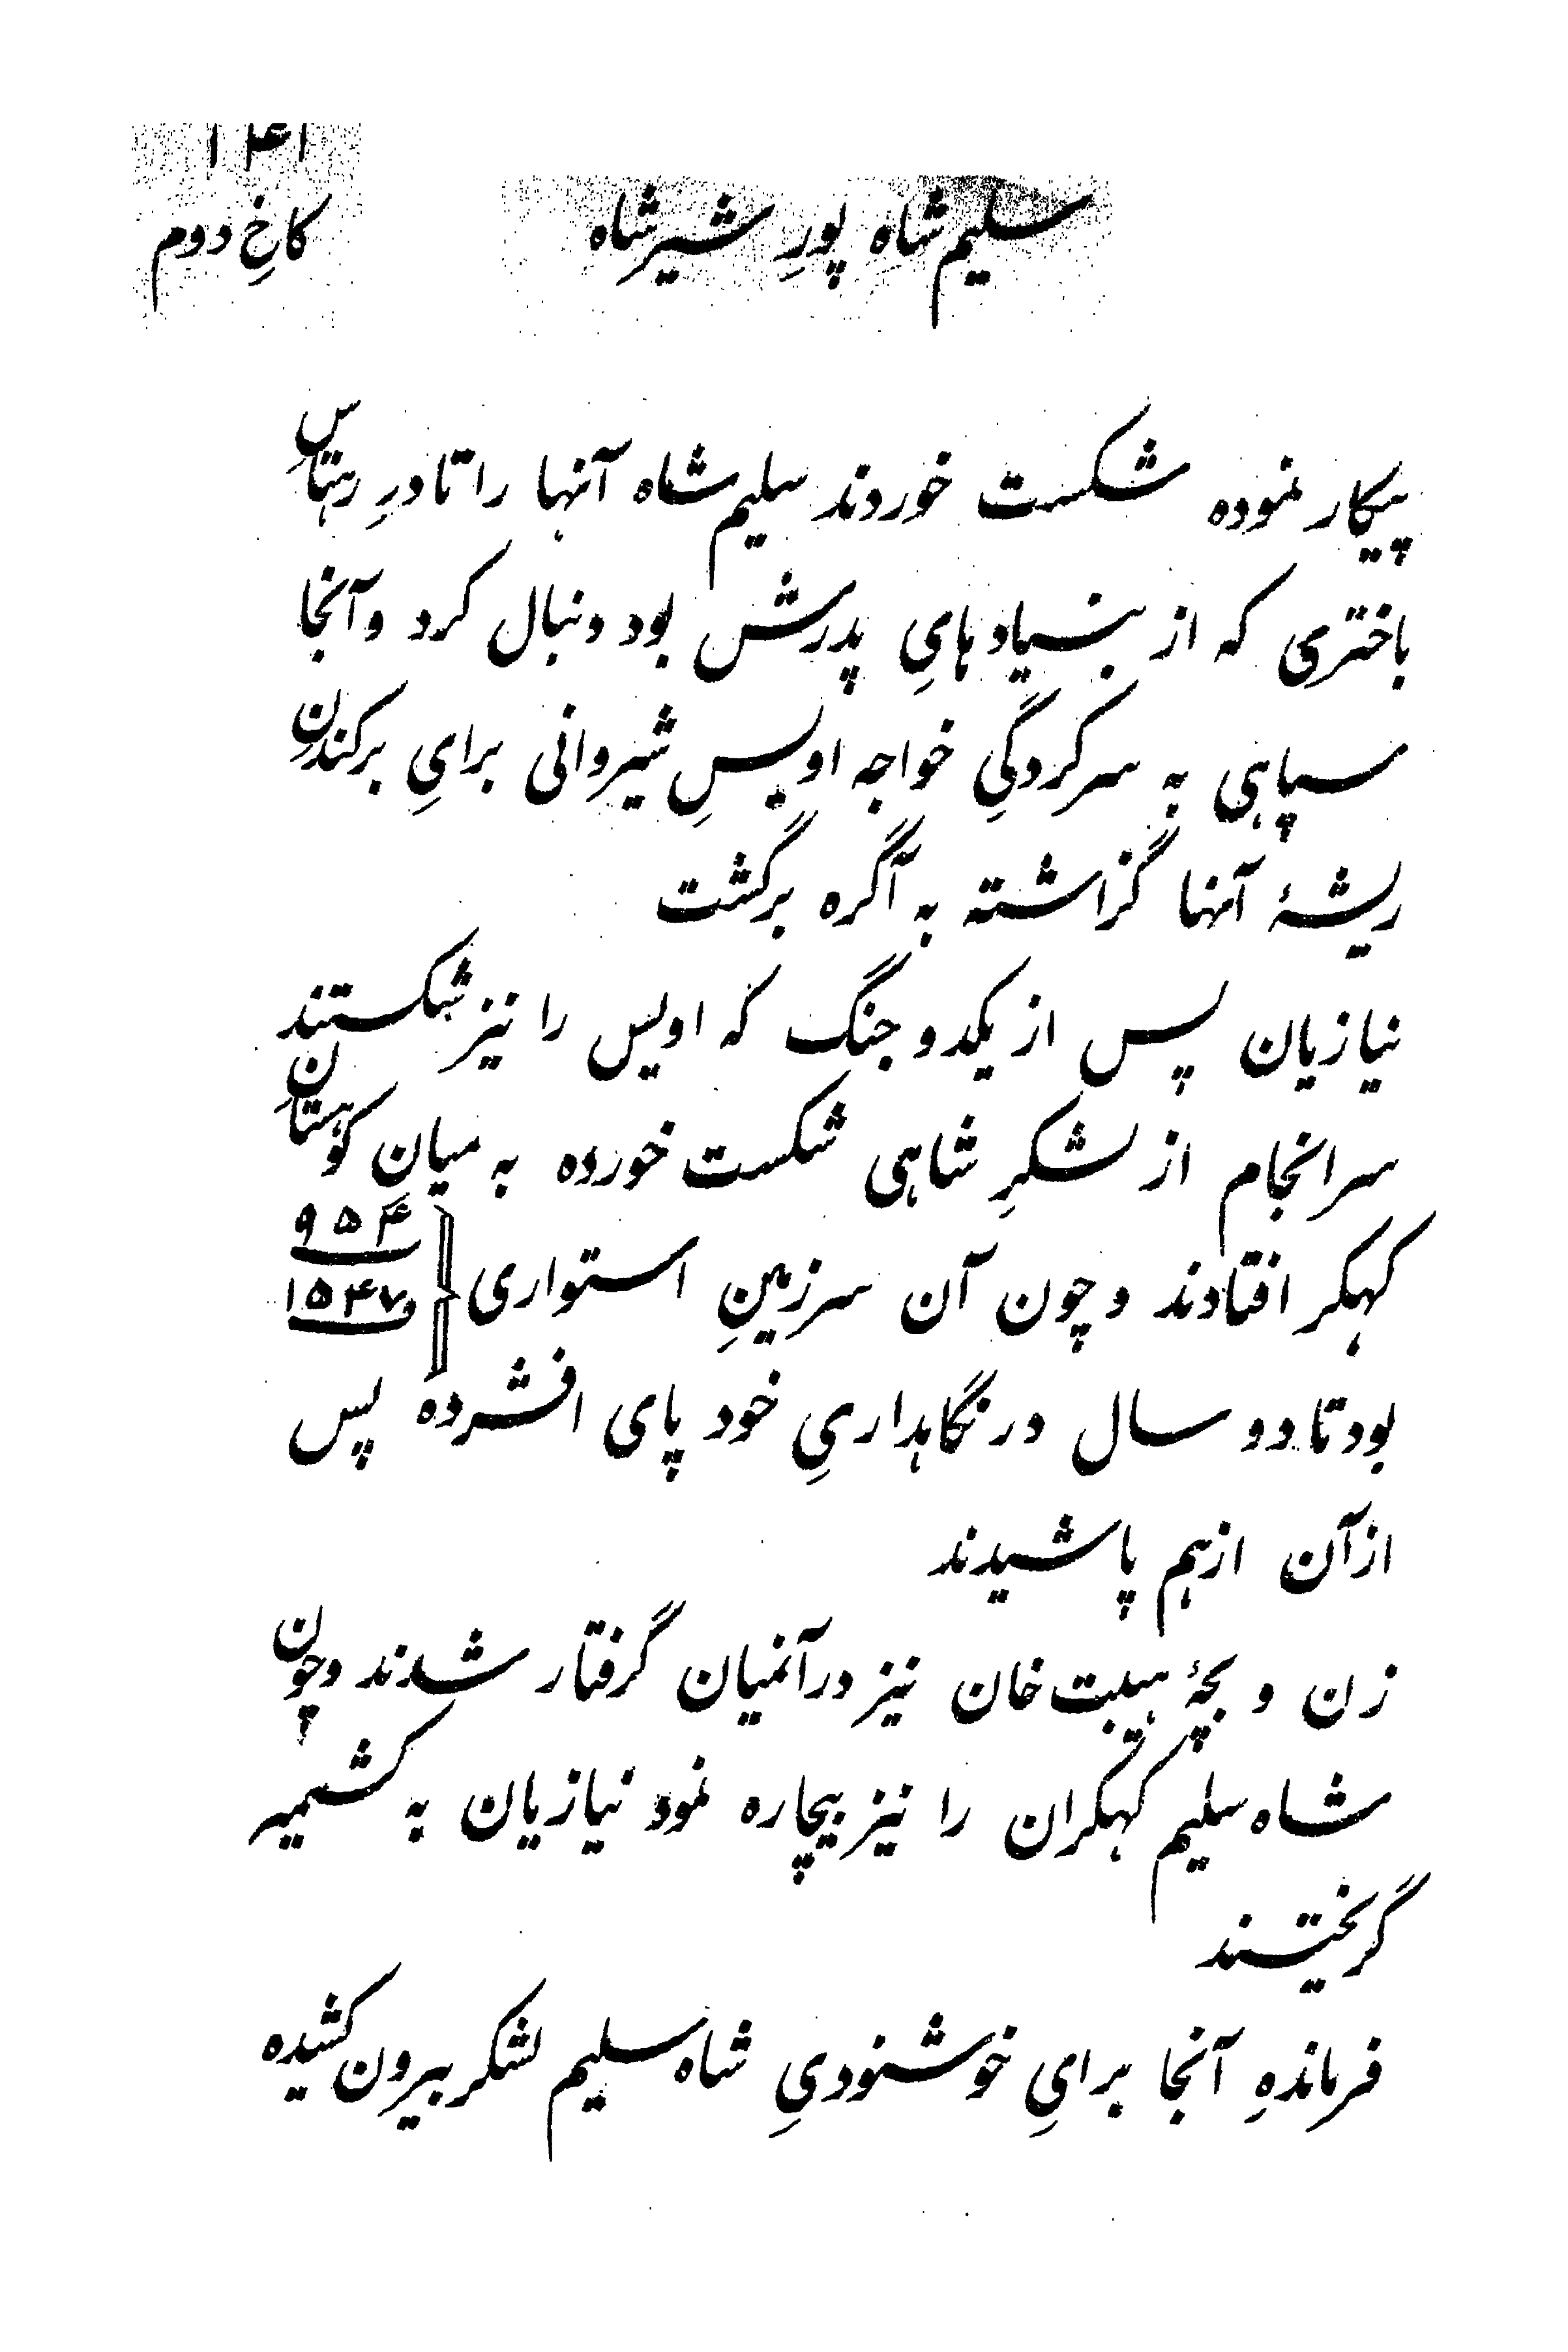 ۱۴۱
سلیم شاه پورِ شیر شاه
کاخِ دوم
پیکار نموده شکست خوردند سلیم شاه آنها را تا درِ رہتاسِ
باختری که از بنیادهایِ پدرش بود دنبال کرد و آنجا
سپاهی به سرکردگیِ خواجه اویسِ شیروانی برایِ برکندنِ
ریشۀ آنها گزاشته به آگره برگشت
نیازیان پس از یکدو جنگ که اویس را نیز شکستند
سرانجام از لشکرِ شاهی شکست خورده به میانِ کوهستانِ
کهکر افتادند و چون آن سرزمینِ استواری
۹۵۴
۱۵۴۷
بود تا دو سال در نگاهداریِ خود پای افشرده پس
از آن از هم پاشیدند
زن و بچۀ هیبت خان نیز در آنمیان گرفتار شدند و چون
شاه سلیم کهکران را نیز بیچاره نمود نیازیان به کشمیر
گریختند
فرماندهِ آنجا برایِ خوشنودیِ شاه سلیم لشکر بیرون کشیده